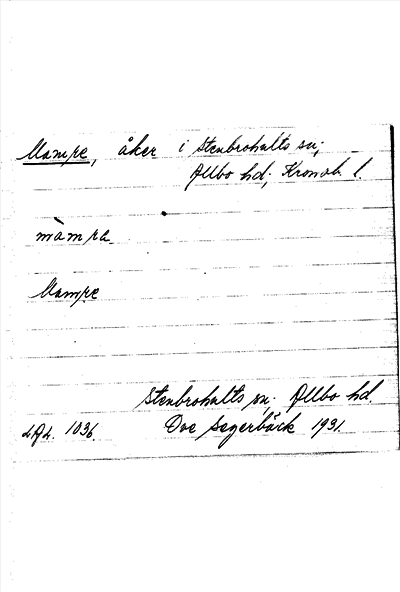 Mampe, åker i Stenbrohults sn;
Allbo hd; Kronob. l.
màmpa
Mampe
Stenbrohults sn. Allbo hd.
LAL. 1036. Ove Segerbäck 1931.